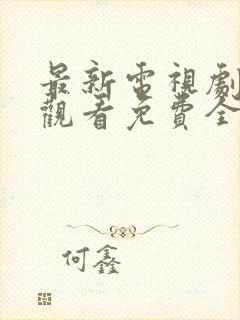 最新電視劇
觀看免費全
何鑫